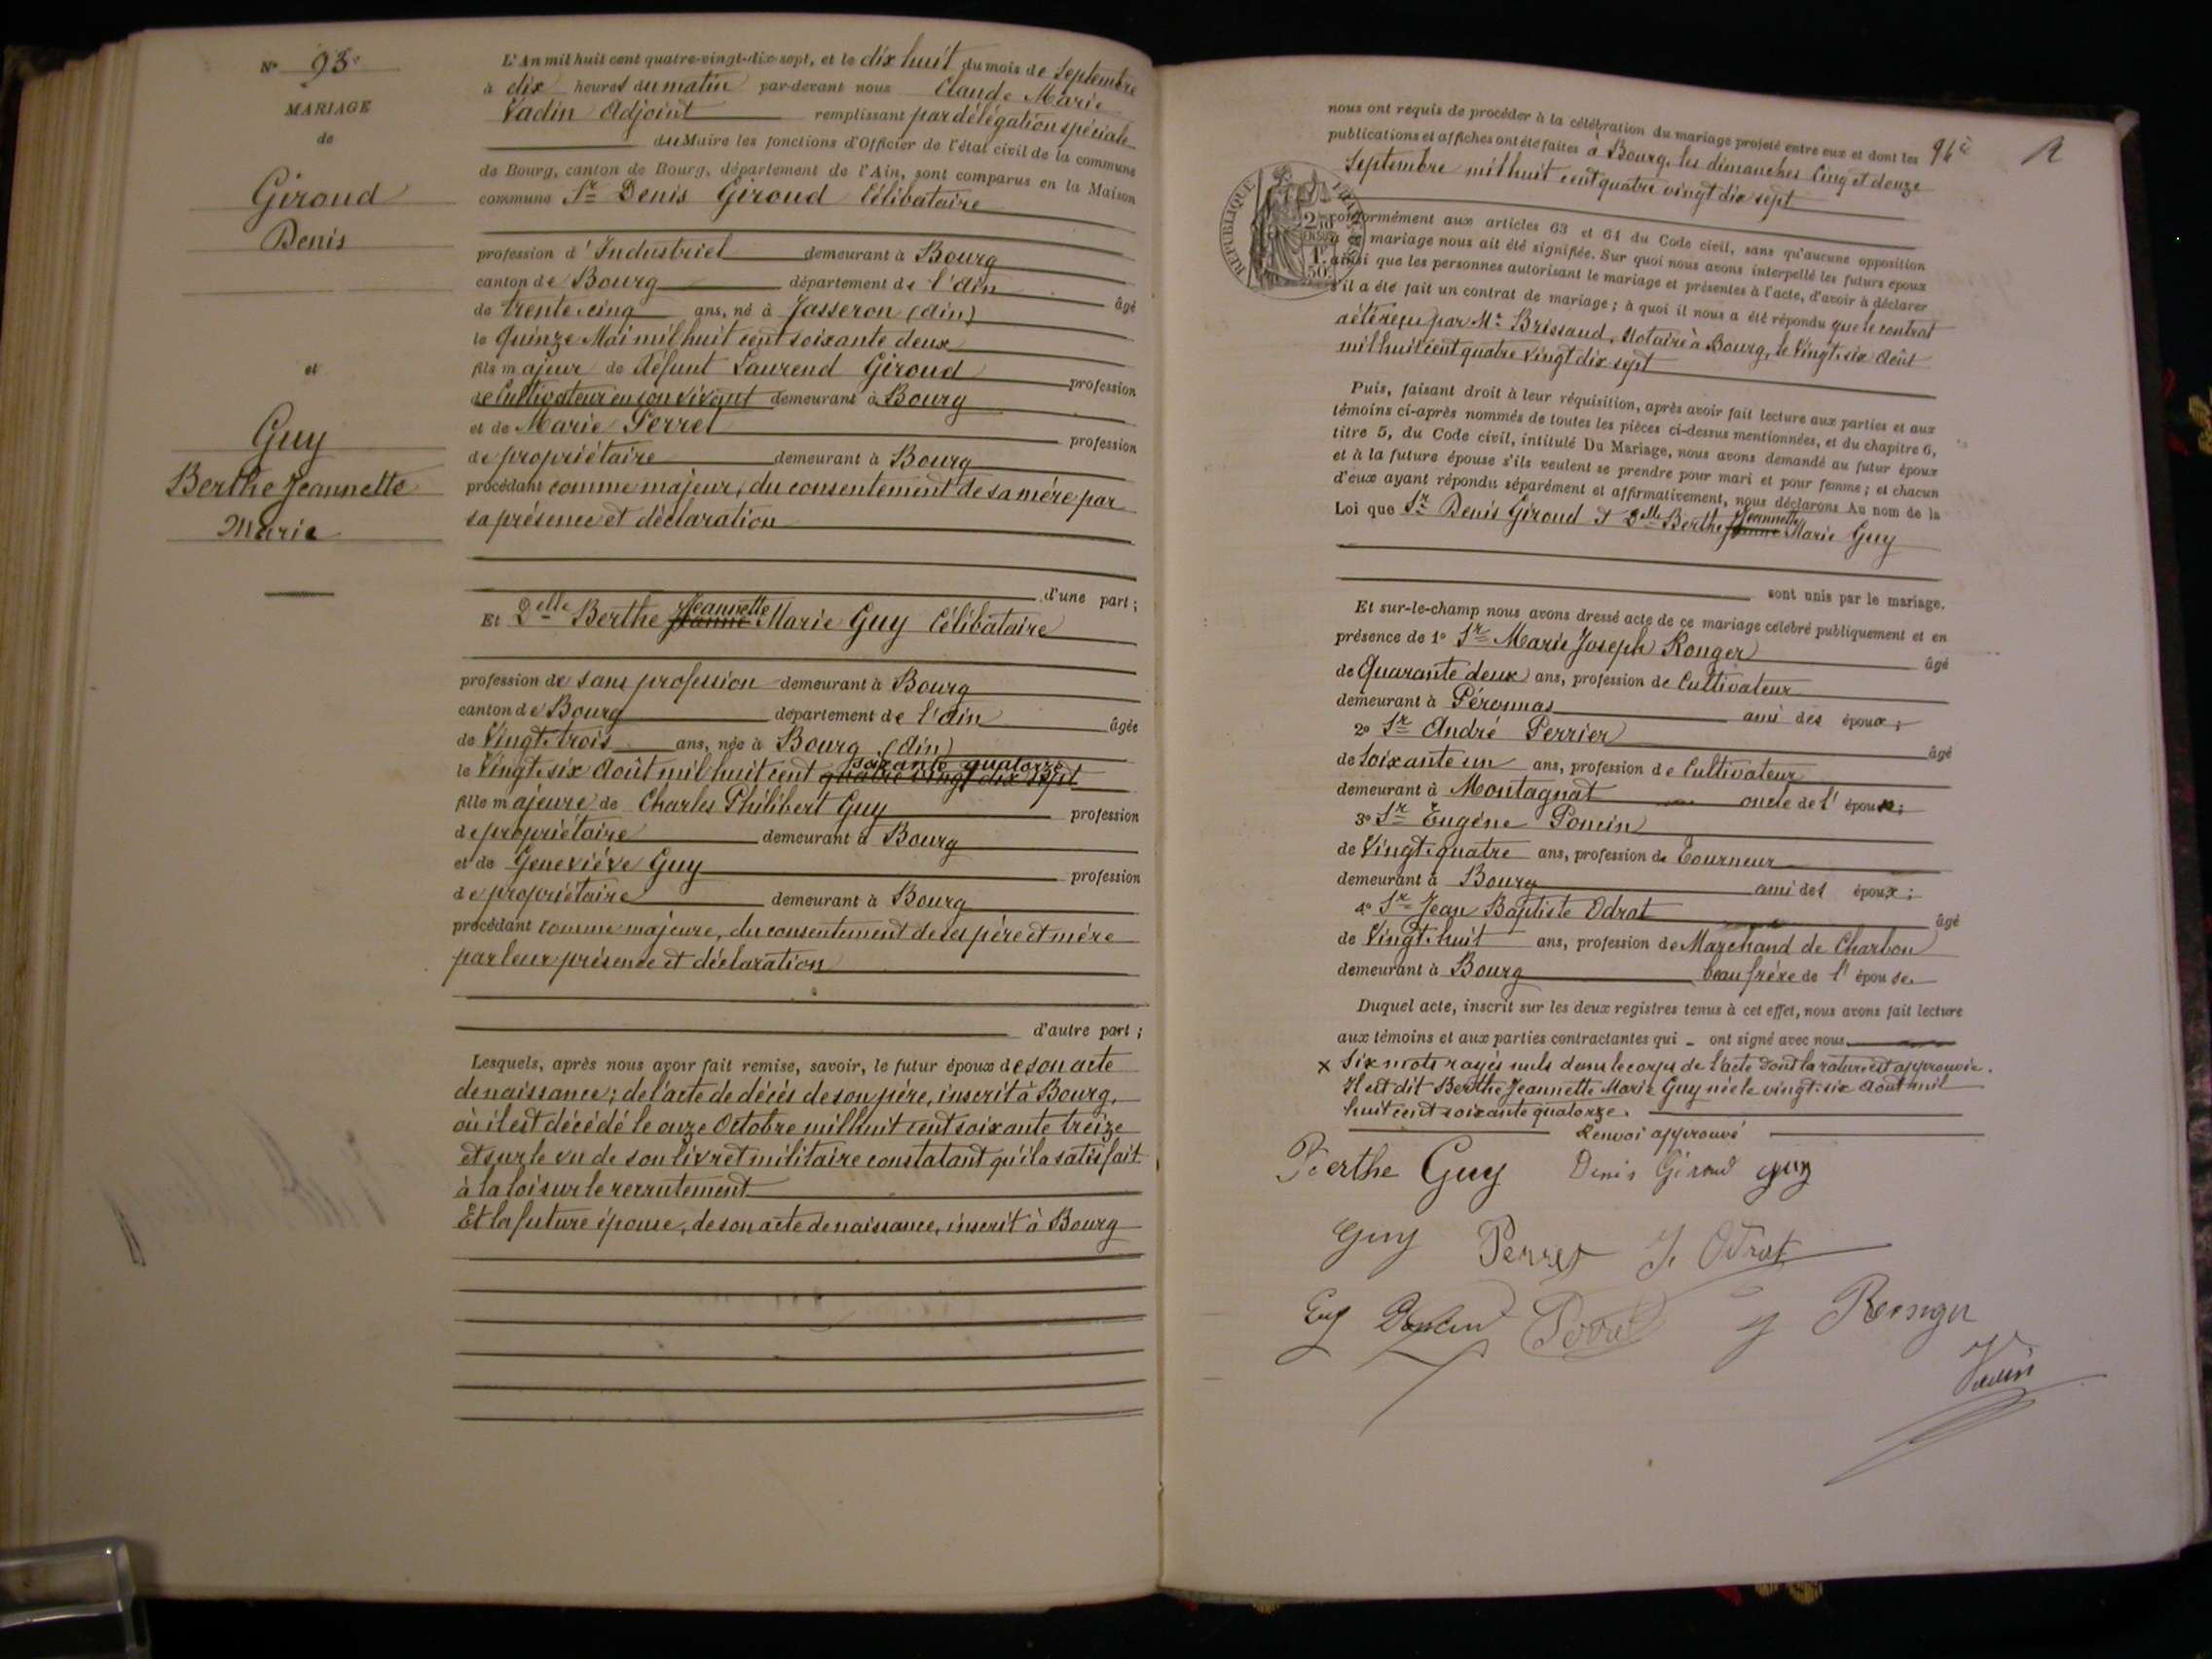 N° 93
MARIAGE
de
Giroud
Denis
et
Guy
Berthe Jeannette
Marie
L'An mil huit cent quatre-vingt-dix-sept, et le dix huit du mois de Septembre
à dix heures du matin par-devant nous Claude Marie
Vadin Adjoint remplissant par délégation spéciale
du Maire les fonctions d'Officier de l'état civil de la commune
de Bourg, canton de Bourg, département de l'Ain, sont comparus en la Maison
commune Sr Denis Giroud Célibataire
profession d'Industriel demeurant à Bourg
canton de Bourg département de l'Ain âgé
de trente-cinq ans, né à Jasseron (Ain)
le Quinze Mai mil huit cent soixante deux
fils majeur de Défunt Laurend Giroud profession
de Cultivateur en son vivant demeurant à Bourg
et de Marie Perret profession
de propriétaire demeurant à Bourg
procédant comme majeur, du consentement de sa mère par
sa présence et déclaration
d'une part;
Et Delle Berthe Jeanne Jeannette Marie Guy Célibataire
profession de sans profession demeurant à Bourg
canton de Bourg département de l'Ain âgée
de Vingt-trois ans, née à Bourg (Ain)
le Vingt-six Août mil huit cent quatre vingt dix sept soixante quatorze
fille majeure de Charles Philibert Guy profession
de propriétaire demeurant à Bourg
et de Geneviève Guy profession
de propriétaire demeurant à Bourg
procédant comme majeure, du consentement de ses père et mère
par leur présence et déclaration
d'autre part;
Lesquels, après nous avoir fait remise, savoir, le futur époux de son acte
de naissance; de l'acte de décès de son père, inscrit à Bourg,
où il est décédé le onze Octobre mil huit cent soixante treize
et sur le vu de son livret militaire constatant qu'il a satisfait
à la loi sur le recrutement
Et la future épouse, de son acte de naissance, inscrit à Bourg
nous ont requis de procéder à la célébration du mariage projeté entre eux et dont les
publications et affiches ont été faites à Bourg, les dimanches Cinq et douze
Septembre mil huit cent quatre vingt dix sept
RÉPUBLIQUE FRANÇAISE
conformément aux articles 63 et 64 du Code civil, sans qu'aucune opposition
à ce mariage nous ait été signifiée. Sur quoi nous avons interpellé les futurs époux
ainsi que les personnes autorisant le mariage et présentes à l'acte, d'avoir à déclarer
s'il a été fait un contrat de mariage; à quoi il nous a été répondu que le contrat
a été reçu par Me Brissaud, Notaire à Bourg, le Vingt-six Août
mil huit cent quatre vingt dix sept
Puis, faisant droit à leur réquisition, après avoir fait lecture aux parties et aux
témoins ci-après nommés de toutes les pièces ci-dessus mentionnées, et du chapitre 6,
titre 5, du Code civil, intitulé Du Mariage, nous avons demandé au futur époux
et à la future épouse s'ils veulent se prendre pour mari et pour femme; et chacun
d'eux ayant répondu séparément et affirmativement, nous déclarons Au nom de la
Loi que Sr Denis Giroud et Delle Berthe Jeanne Jeannette Marie Guy
sont unis par le mariage.
Et sur-le-champ nous avons dressé acte de ce mariage célébré publiquement et en
présence de 1° Sr Marie Joseph Ronger âgé
de Quarante deux ans, profession de Cultivateur
demeurant à Péronnas ami des époux;
2° Sr André Perrier âgé
de Soixante un ans, profession de Cultivateur
demeurant à Montagnat oncle de l'époux;
3° Sr Eugène Poncin
de Vingt-quatre ans, profession de Tourneur
demeurant à Bourg ami des époux;
4° Sr Jean Baptiste Odrat âgé
de Vingt-huit ans, profession de Marchand de Charbon
demeurant à Bourg beau frère de l'épouse
Duquel acte, inscrit sur les deux registres tenus à cet effet, nous avons fait lecture
aux témoins et aux parties contractantes qui ont signé avec nous
x Six mots rayés nuls dans le corps de l'acte dont la rature est approuvée.
Il est dit Berthe Jeannette Marie Guy née le vingt-six Août mil
huit cent soixante quatorze.
Renvoi approuvé
Berthe Guy Denis Giroud guy
Guy Perret J. Odrat
Eug Ronger
Vadin